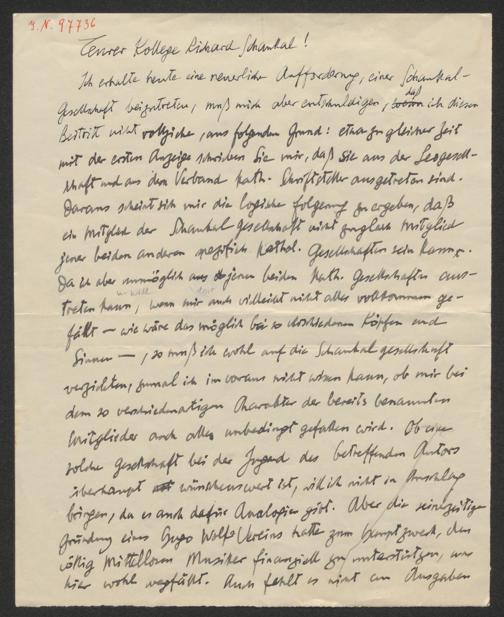 J.N. 97736
Teurer Kollege Richard Schaukal!
Ich erhalte heute eine neuerliche Aufforderung, einer Schaukal-
Gesellschaft beizutreten, muß mich aber entschuldigen, daß ich diesen
Beitritt nicht vollziehe, aus folgendem Grund: etwa zu gleicher Zeit
mit der ersten Anzeige schrieben Sie mir, daß Sie aus der Leogesell-
schaft und aus dem Verband kath. Schriftsteller ausgetreten sind.
Daraus scheint sich mir die logische Folgerung zu ergeben, daß
ein Mitglied der Schaukal Gesellschaft nicht zugleich Mitglied
jener beiden anderen spezifisch kathol. Gesellschaften sein kann.
Da ich aber unmöglich aus jenen beiden kath. Gesellschaften aus-
treten kann, wenn mir auch vielleicht nicht alles vollkommen ge-
fällt — wie wäre das möglich bei so verschiedenen Köpfen und
Sinnen —, so muß ich wohl auf die Schaukalgesellschaft
verzichten, zumal ich im voraus nicht wissen kann, ob mir bei
dem so verschiedenartigen Charakter der bereits benannten
Mitglieder auch alles unbedingt gefallen wird. Ob eine
solche Gesellschaft bei der Jugend des betreffenden Autors
überhaupt wünschenswert ist, will ich nicht in Anschlag
bringen, da es auch dafür Analogien gibt. Aber die seinerzeitige
Gründung eines Hugo Wolf-Vereins hatte zum Hauptzweck, den
völlig mittellosen Musiker finanziell zu unterstützen, was
hier wohl wegfällt. Auch fehlt es nicht an Ausgaben